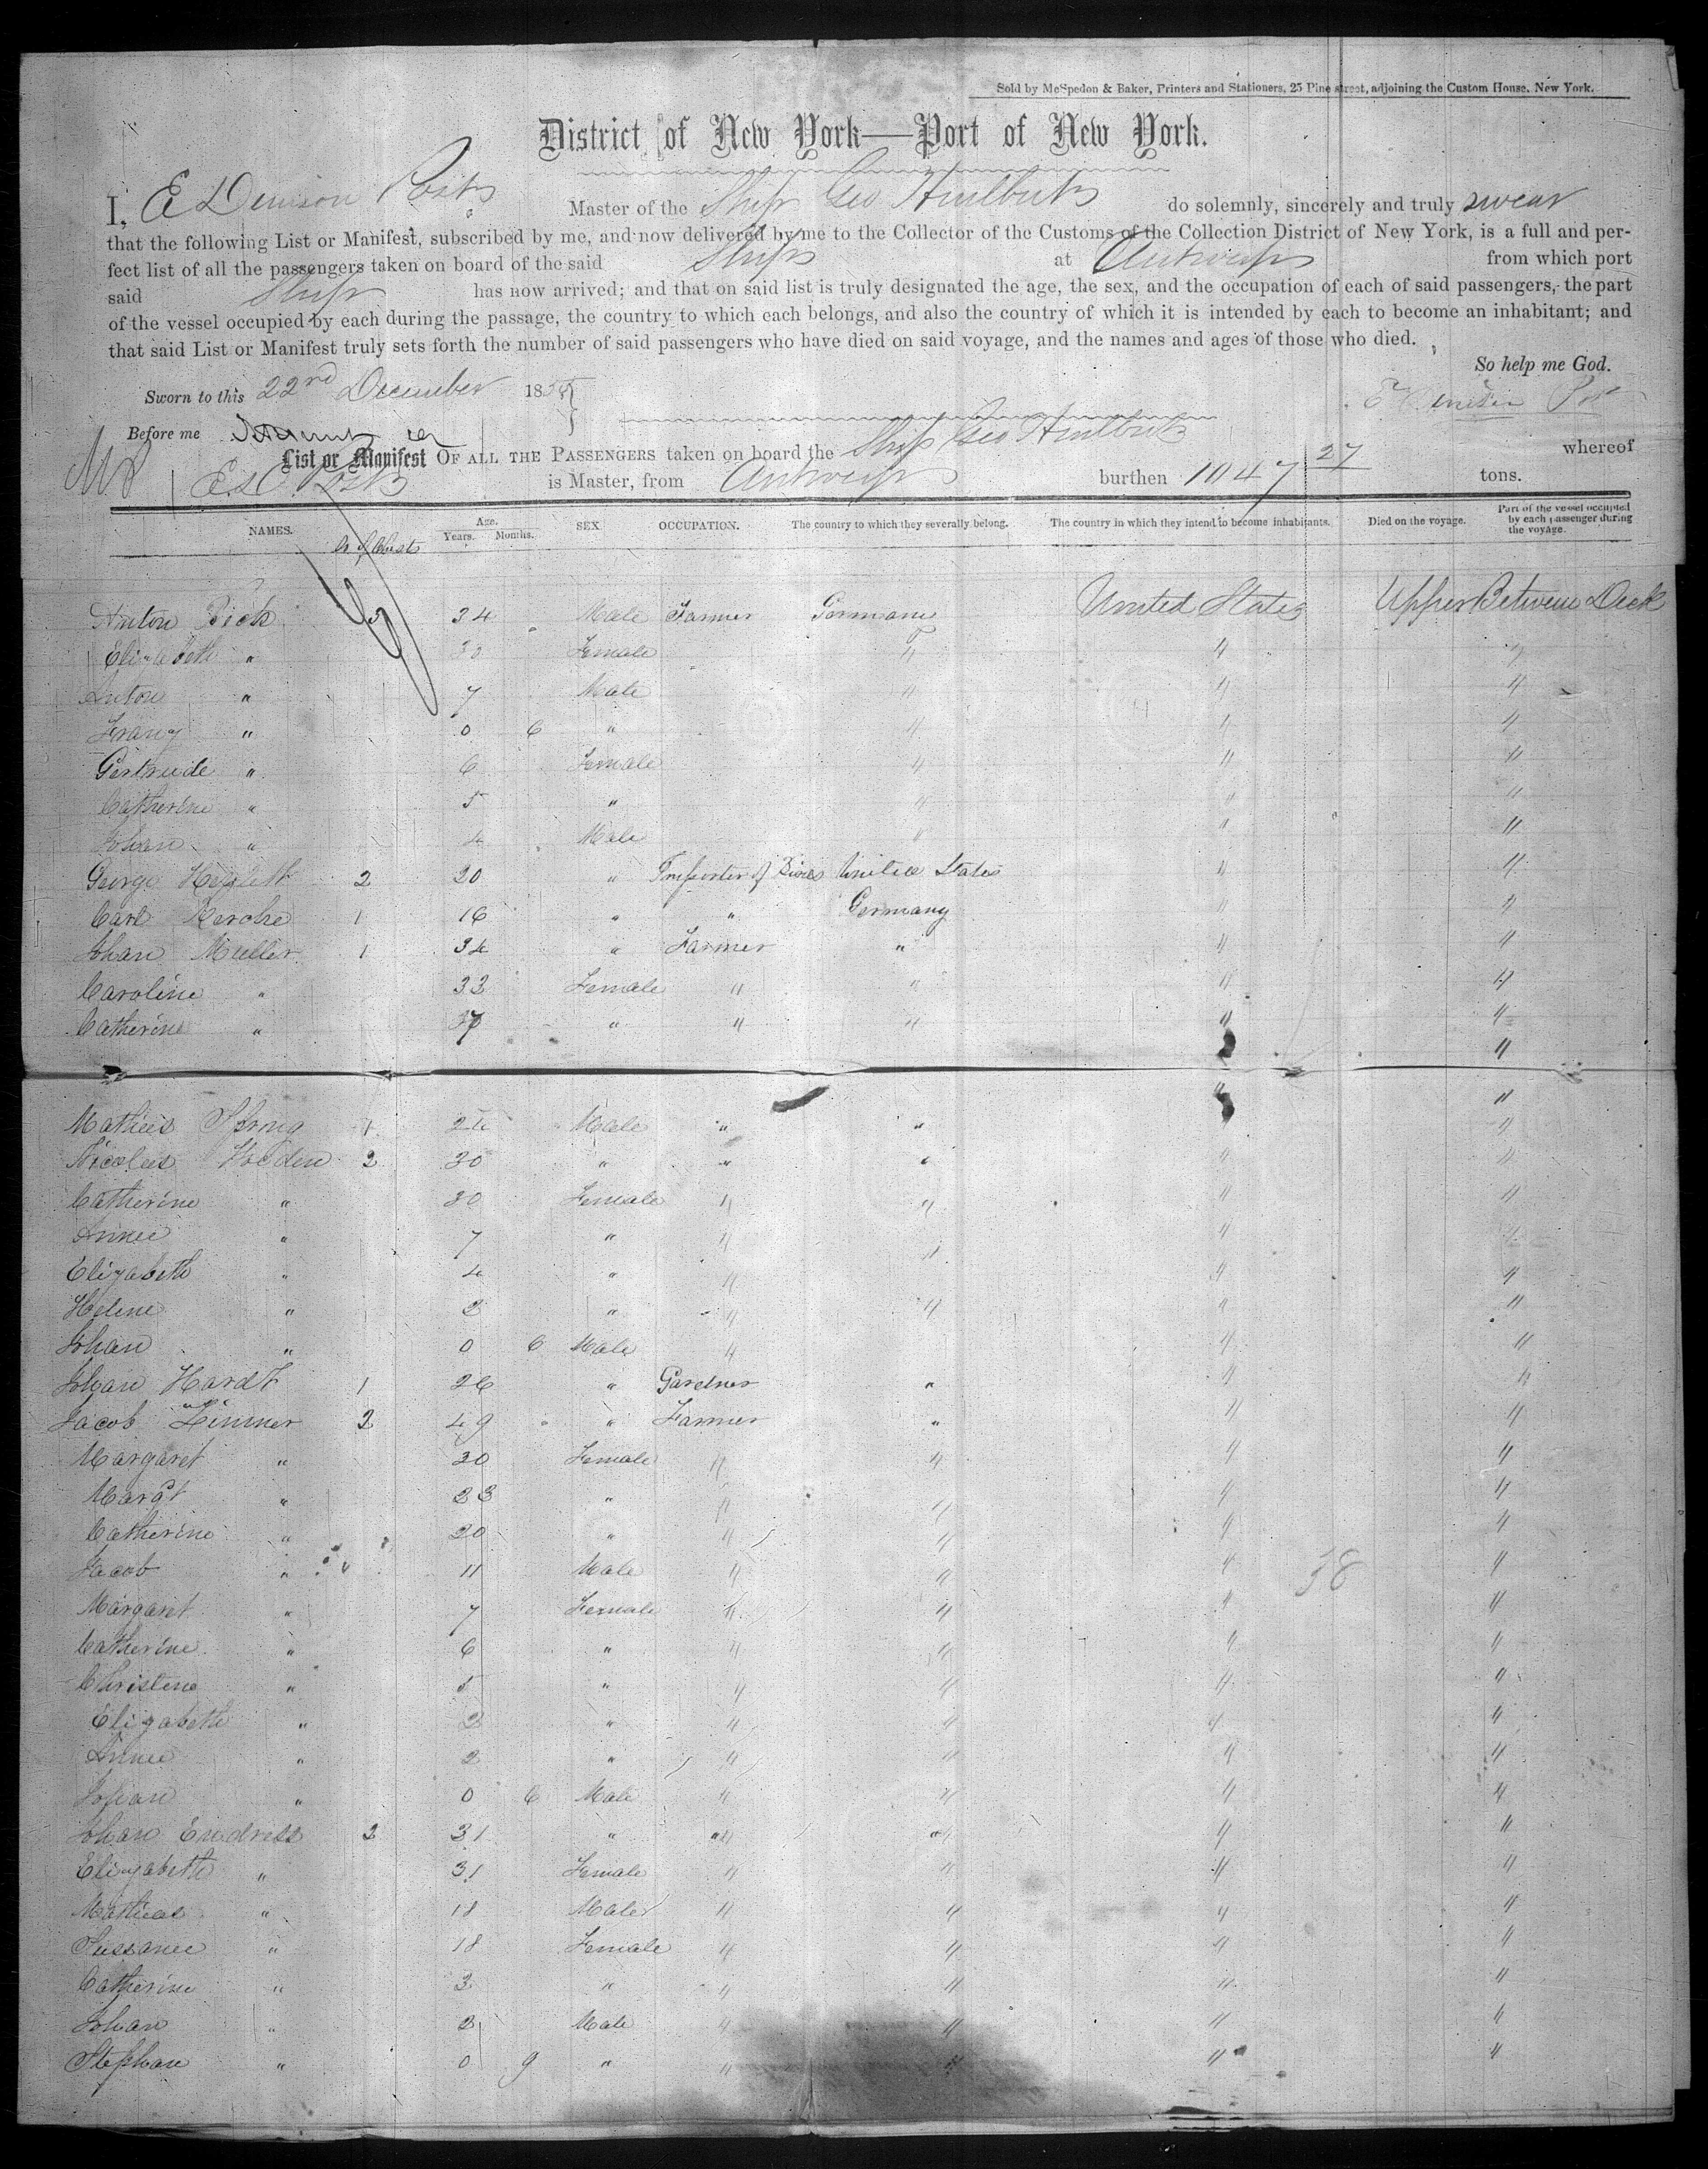 Sold by McSpedon & Baker, Printers and Stationers, 25 Pine street, adjoining the Custom House, New York.
District of New York—Port of New York.
I, E Denison Post Master of the Ship Geo Hurlbut do solemnly, sincerely and truly swear
that the following List or Manifest, subscribed by me, and now delivered by me to the Collector of the Customs of the Collection District of New York, is a full and per-
fect list of all the passengers taken on board of the said Ship at Antwerp from which port
said Ship has now arrived; and that on said list is truly designated the age, the sex, and the occupation of each of said passengers, the part
of the vessel occupied by each during the passage, the country to which each belongs, and also the country of which it is intended by each to become an inhabitant; and
that said List or Manifest truly sets forth the number of said passengers who have died on said voyage, and the names and ages of those who died.
So help me God.
Sworn to this 22nd December 185 E Denison Post
Before me
List or Manifest OF ALL THE PASSENGERS taken on board the Ship Geo Hurlbut whereof
E.D. Post is Master, from Antwerp burthen 1047 27 tons.
NAMES. Age. Years. Months. SEX OCCUPATION. The country to which they severally belong. The country in which they intend to become inhabitants. Died on the voyage. Part of the vessel occupied by each passenger during the voyage.
No of Chests
Anton 3 34 Male Farmer Germany United States Upper Between Deck
Elizabeth " 30 Female " " "
Anton " 7 Male " " "
Franz " 0 6 " " " "
Gertrude " 6 Female " " "
Catherine " 5 " " " "
Johan " 4 Male " " "
George 2 20 " Importer of United States " "
Carl 1 16 " " Germany " "
Johan Muller 1 34 " Farmer " " "
Caroline " 33 Female " " " "
Catherine " " " " " "
"
" "
Mathias 1 24 Male " " "
Nicolas 2 30 " " " " "
Catherine " 30 Female " " " "
Anne " 7 " " " " "
Elizabeth " 4 " " " "
Helene " 2 " " " " "
Johan " 0 6 Male " " "
Johan Hardt 1 26 " Gardner " " "
Jacob Zimmer 2 49 " Farmer " " "
Margaret " 30 Female " " " "
Margt " 23 " " " " "
Catherine " 20 " " " " "
Jacob " 11 Male " " " "
58
Margaret " 7 Female " " " "
Catherine " 6 " " " " "
Christene " 5 " " " " "
Elizabeth " 2 " " " " "
Anne " 2 " " " " "
Johan " 0 6 Male " " " "
Johan Endress 2 31 " " " " "
Elizabeth " 31 Female " " " "
Mathias " 18 Male " " " "
Sussanne " 18 Female " " " "
Catherine " 3 " " " " "
Johan " 2 Male " " " "
Stephan " 0 9 " " " " "